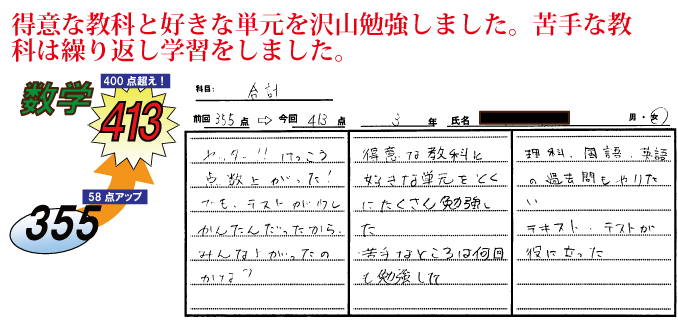 得意な教科と好きな単元を沢山勉強しました。苦手な教
科は繰り返し学習をしました。
400 点超え!
数学
413
58 点アップ
355
科目: 合計
前回 355 点 ⇨ 今回 413 点 3 年 氏名 男・女
ヤッター!! けっこう
点数上がった!
でも、テストが少し
かんたんだったから、
みんな上がったの
かな?
得意な教科と
好きな単元をとく
にたくさん勉強し
た
苦手なところは何回
も勉強した
理科、国語、英語
の過去問もやりた
い
テキスト・テストが
役に立った